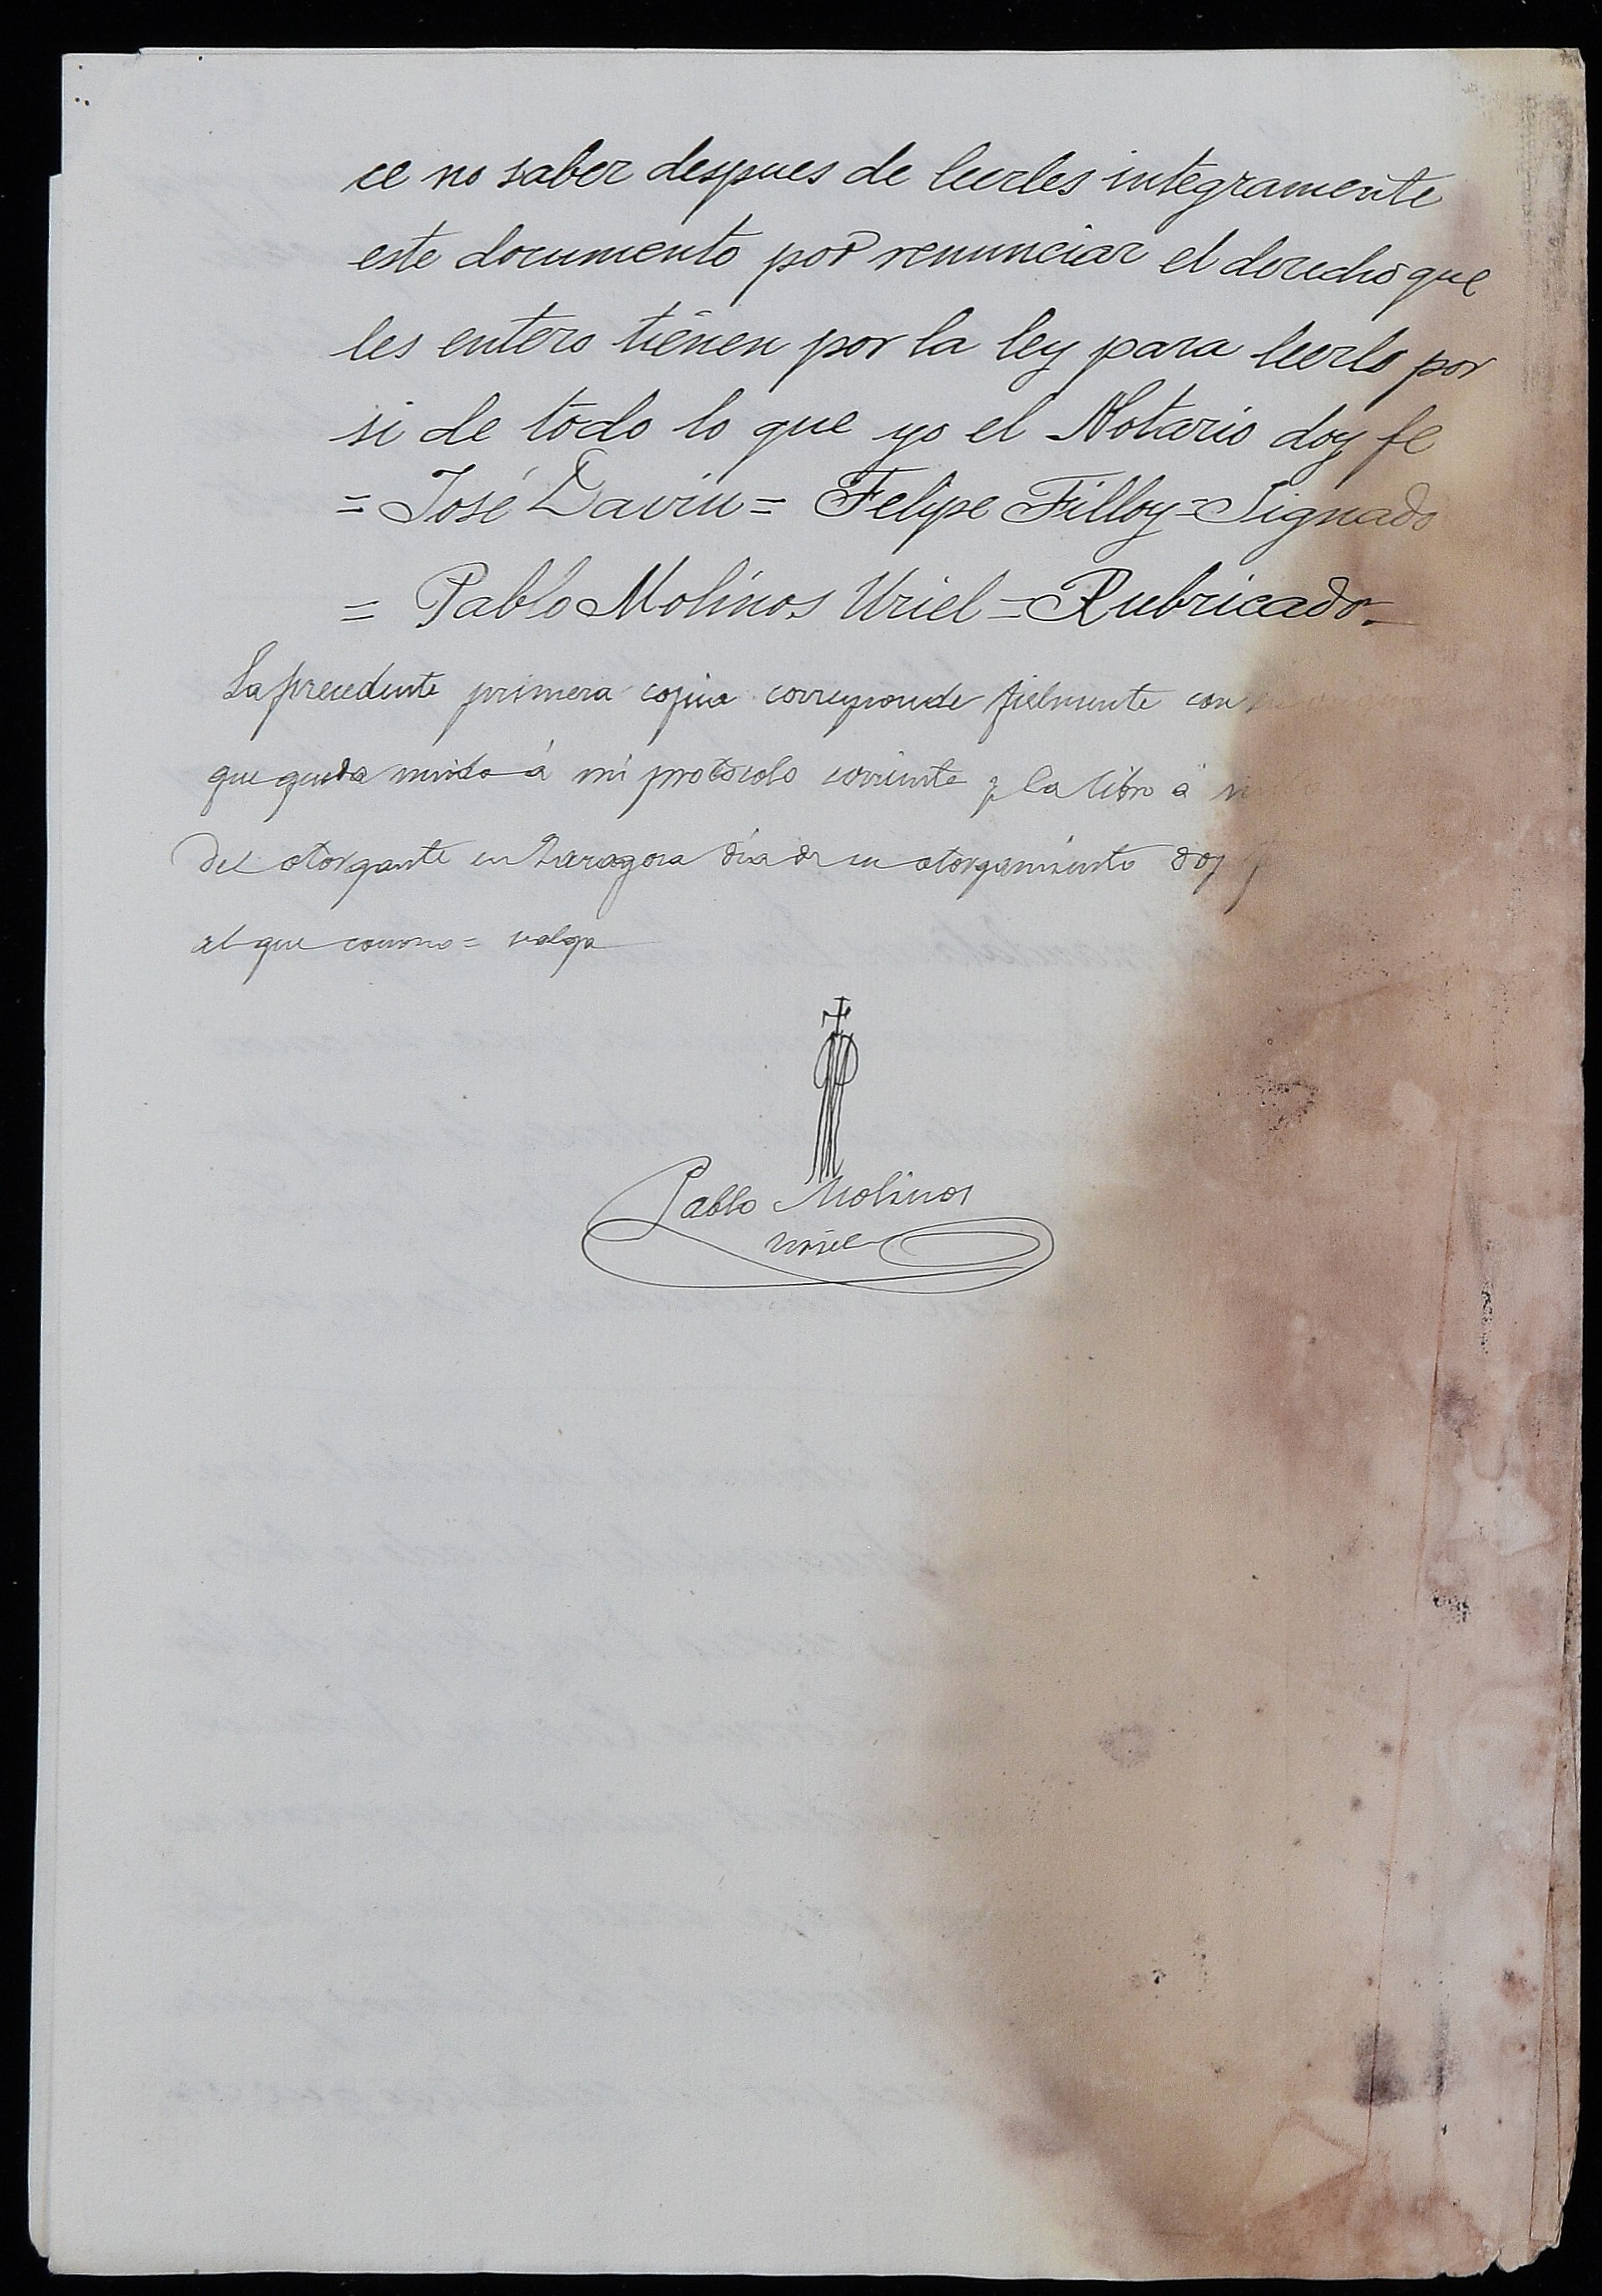 ce no saber despues de leerles integramente
este documento por renunciar el derecho que
les entero tienen por la ley para leerlo por
si de todo lo que yo el Notario doy fe
= José Davin = Felipe Filloy = Signado
= Pablo Molinos Uriel = Rubricado.
La precedente primera copia corresponde fielmente con
que queda unida á mi protocolo corriente y la libro á
del otorgante en Zaragoza dia de su otorgamiento doy
al que conozco = valga
Pablo Molinos
Uriel